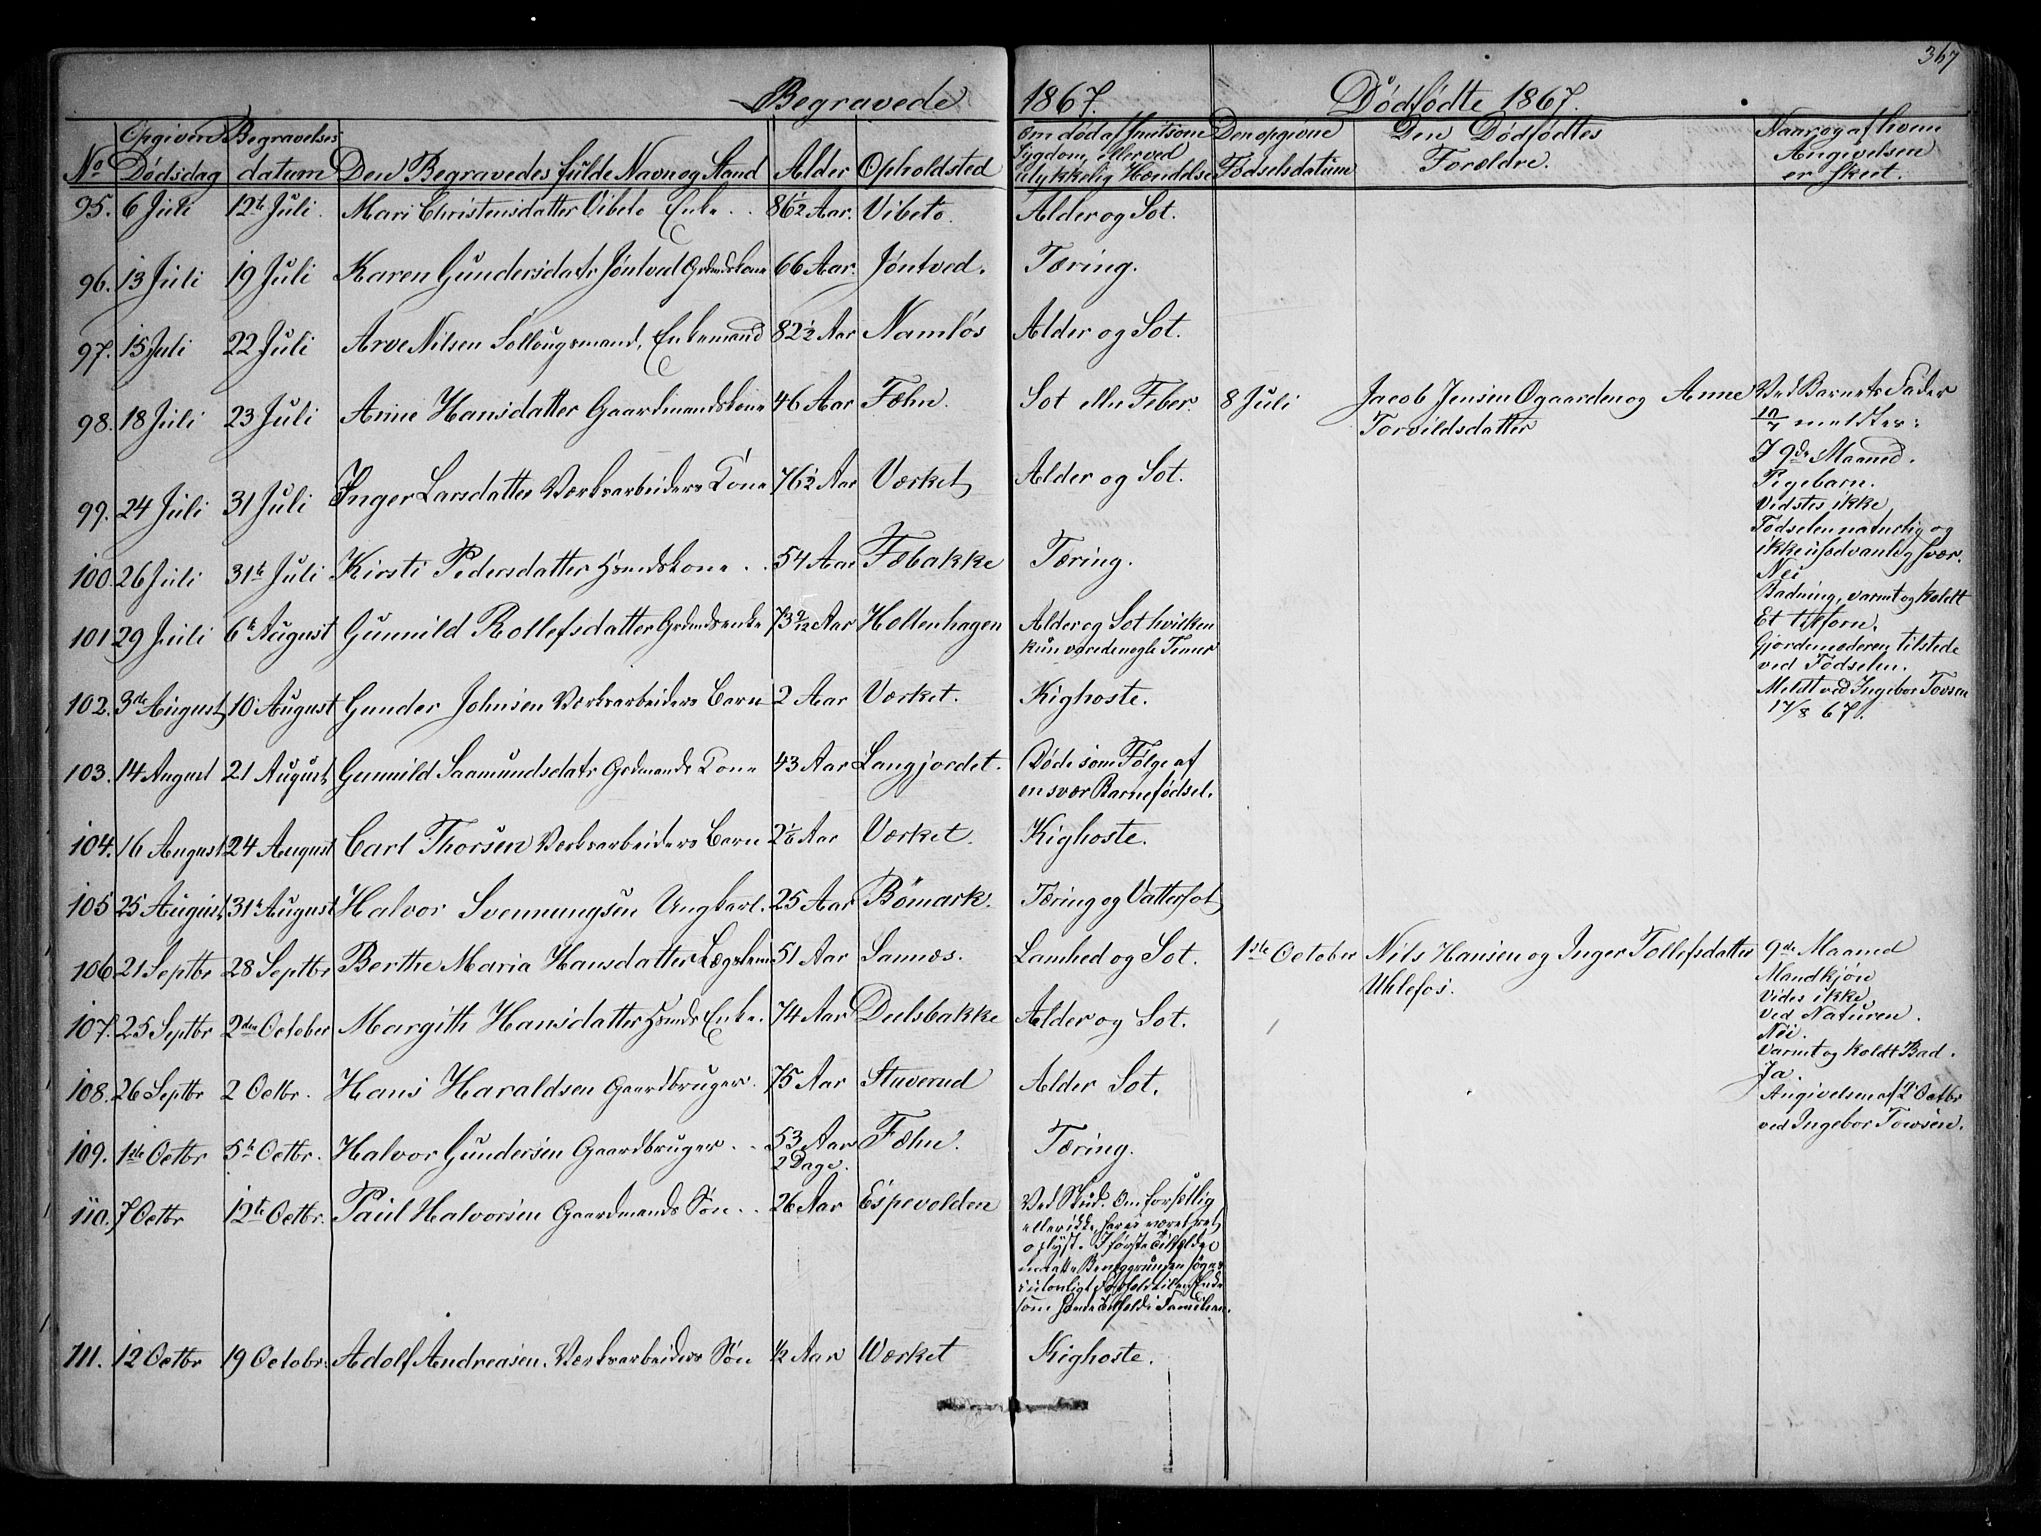 367
Begravede 1867. Dödfödte 1867.
No Opgiven Dödsdag Begravelses datum Den Begravedes fulde Navn og Stand Alder Opholdsted Om död af smitsom Sygdom eller ved ulykkelig Hændelse Den opgivne Födselsdatum Den Dödfödtes Forældre. Naar og af hvem Angivelsen er skeet.
95. 6 Juli 12te Juli. Mari Christensdatter Vibeto Enke .. 86 1/2 Aar. Vibeto. Alder og Sot.
96. 13 Juli 19 Juli Karen Gundersdatr Jöntved Grdmdskone 66 Aar. Jöntved. Tæring.
97. 15 Juli 22 Juli Arve Nilsen Sollougsmand, Enkemand 82 1/2 Aar Namlös Alder og Sot.
98. 18 Juli 23 Juli Anne Hansdatter Gaardmandskone 46 Aar Fæhn. Sot eller Feber.
8 Juli Jacob Jensen Ogaarden og Anne Torvildsdatter
Ved Barnets Fader
10/7 meldtes:
I 9de Maaned.
Pigebarn.
Vidstes ikke
Födselen naturlig og
ikke usædvanlig svær.
Nei
Badning, varmt og koldt
Et tilforn.
Gjordemoderen tilstede
ved Födselen.
Meldt ved Ingebor Tovsen
17/8 67.
99. 24 Juli 31 Juli Inger Larsdatter Værksarbeiders Kone 76 1/2 Aar Værket Alder og Sot.
100. 26 Juli 31te Juli Kirsti Pedersdatter Hsmdskone .. 54 Aar Fæbakke Tæring.
101 29 Juli 6te August Gunnild Rollefsdatter Grdmdsenke 73 9/12 Aar Hollenhagen Alder og Sot hvilken
kun varede nogle Timer
102. 3die August 10 August Gunder Johnsen Værksarbeiders Barn 2 Aar Værket. Kighoste.
103. 14 August 21 August Gunnild Saamundsdatr Grdmands Kone 43 Aar Langjordet. Döde som Fölge af
en svær Barnefödsel.
104. 16 August 24 August Carl Thorsen Værksarbeiders Barn 2 1/6 Aar Værket. Kighoste.
105 25 August 31te August Halvor Svennungsen Ungkarl. 25 Aar Bömark. Tæring og Vattersot
106 21 Septbr 28 Septbr Berthe Maria Hansdatter Lægslem 51 Aar Sannæs. Lamhed og Sot.
1ste October Nils Hansen og Inger Tollefsdatter
Uhlefos.
9de Maaned
Mandkjön
Vides ikke
Ved Naturen.
Nei.
Varmt og koldt Bad.
Ja.
Angivelsen af 2 Octbr
ved Ingebor Towsen.
107. 25 Septbr 2den October Margith Hansdatter Hsmds Enke. 74 Aar Deelsbakke Alder og Sot.
108. 26 Septbr 2 Octbr. Hans Haraldsen Gaardbruger. 75 Aar Stuverud Alder Sot.
109. 1ste Octbr 5te Octbr. Halvor Gundersen Gaardbruger .. 53 Aar
2 Dage. Fæhn. Tæring.
110. 7 Octbr 12te Octbr. Paul Halvorsen Gaardmands Sön .. 26 Aar Espevolden Ved Skud. Om forsætlig
eller ikke, har ei været ret
oplyst. I förste Tilfælde
maatte Bevæggrunden söges
som
111. 12 Octbr 19 Octobr. Adolf Andreasen. Værksarbeiders Sön 1/2 Aar Værket Kighoste.